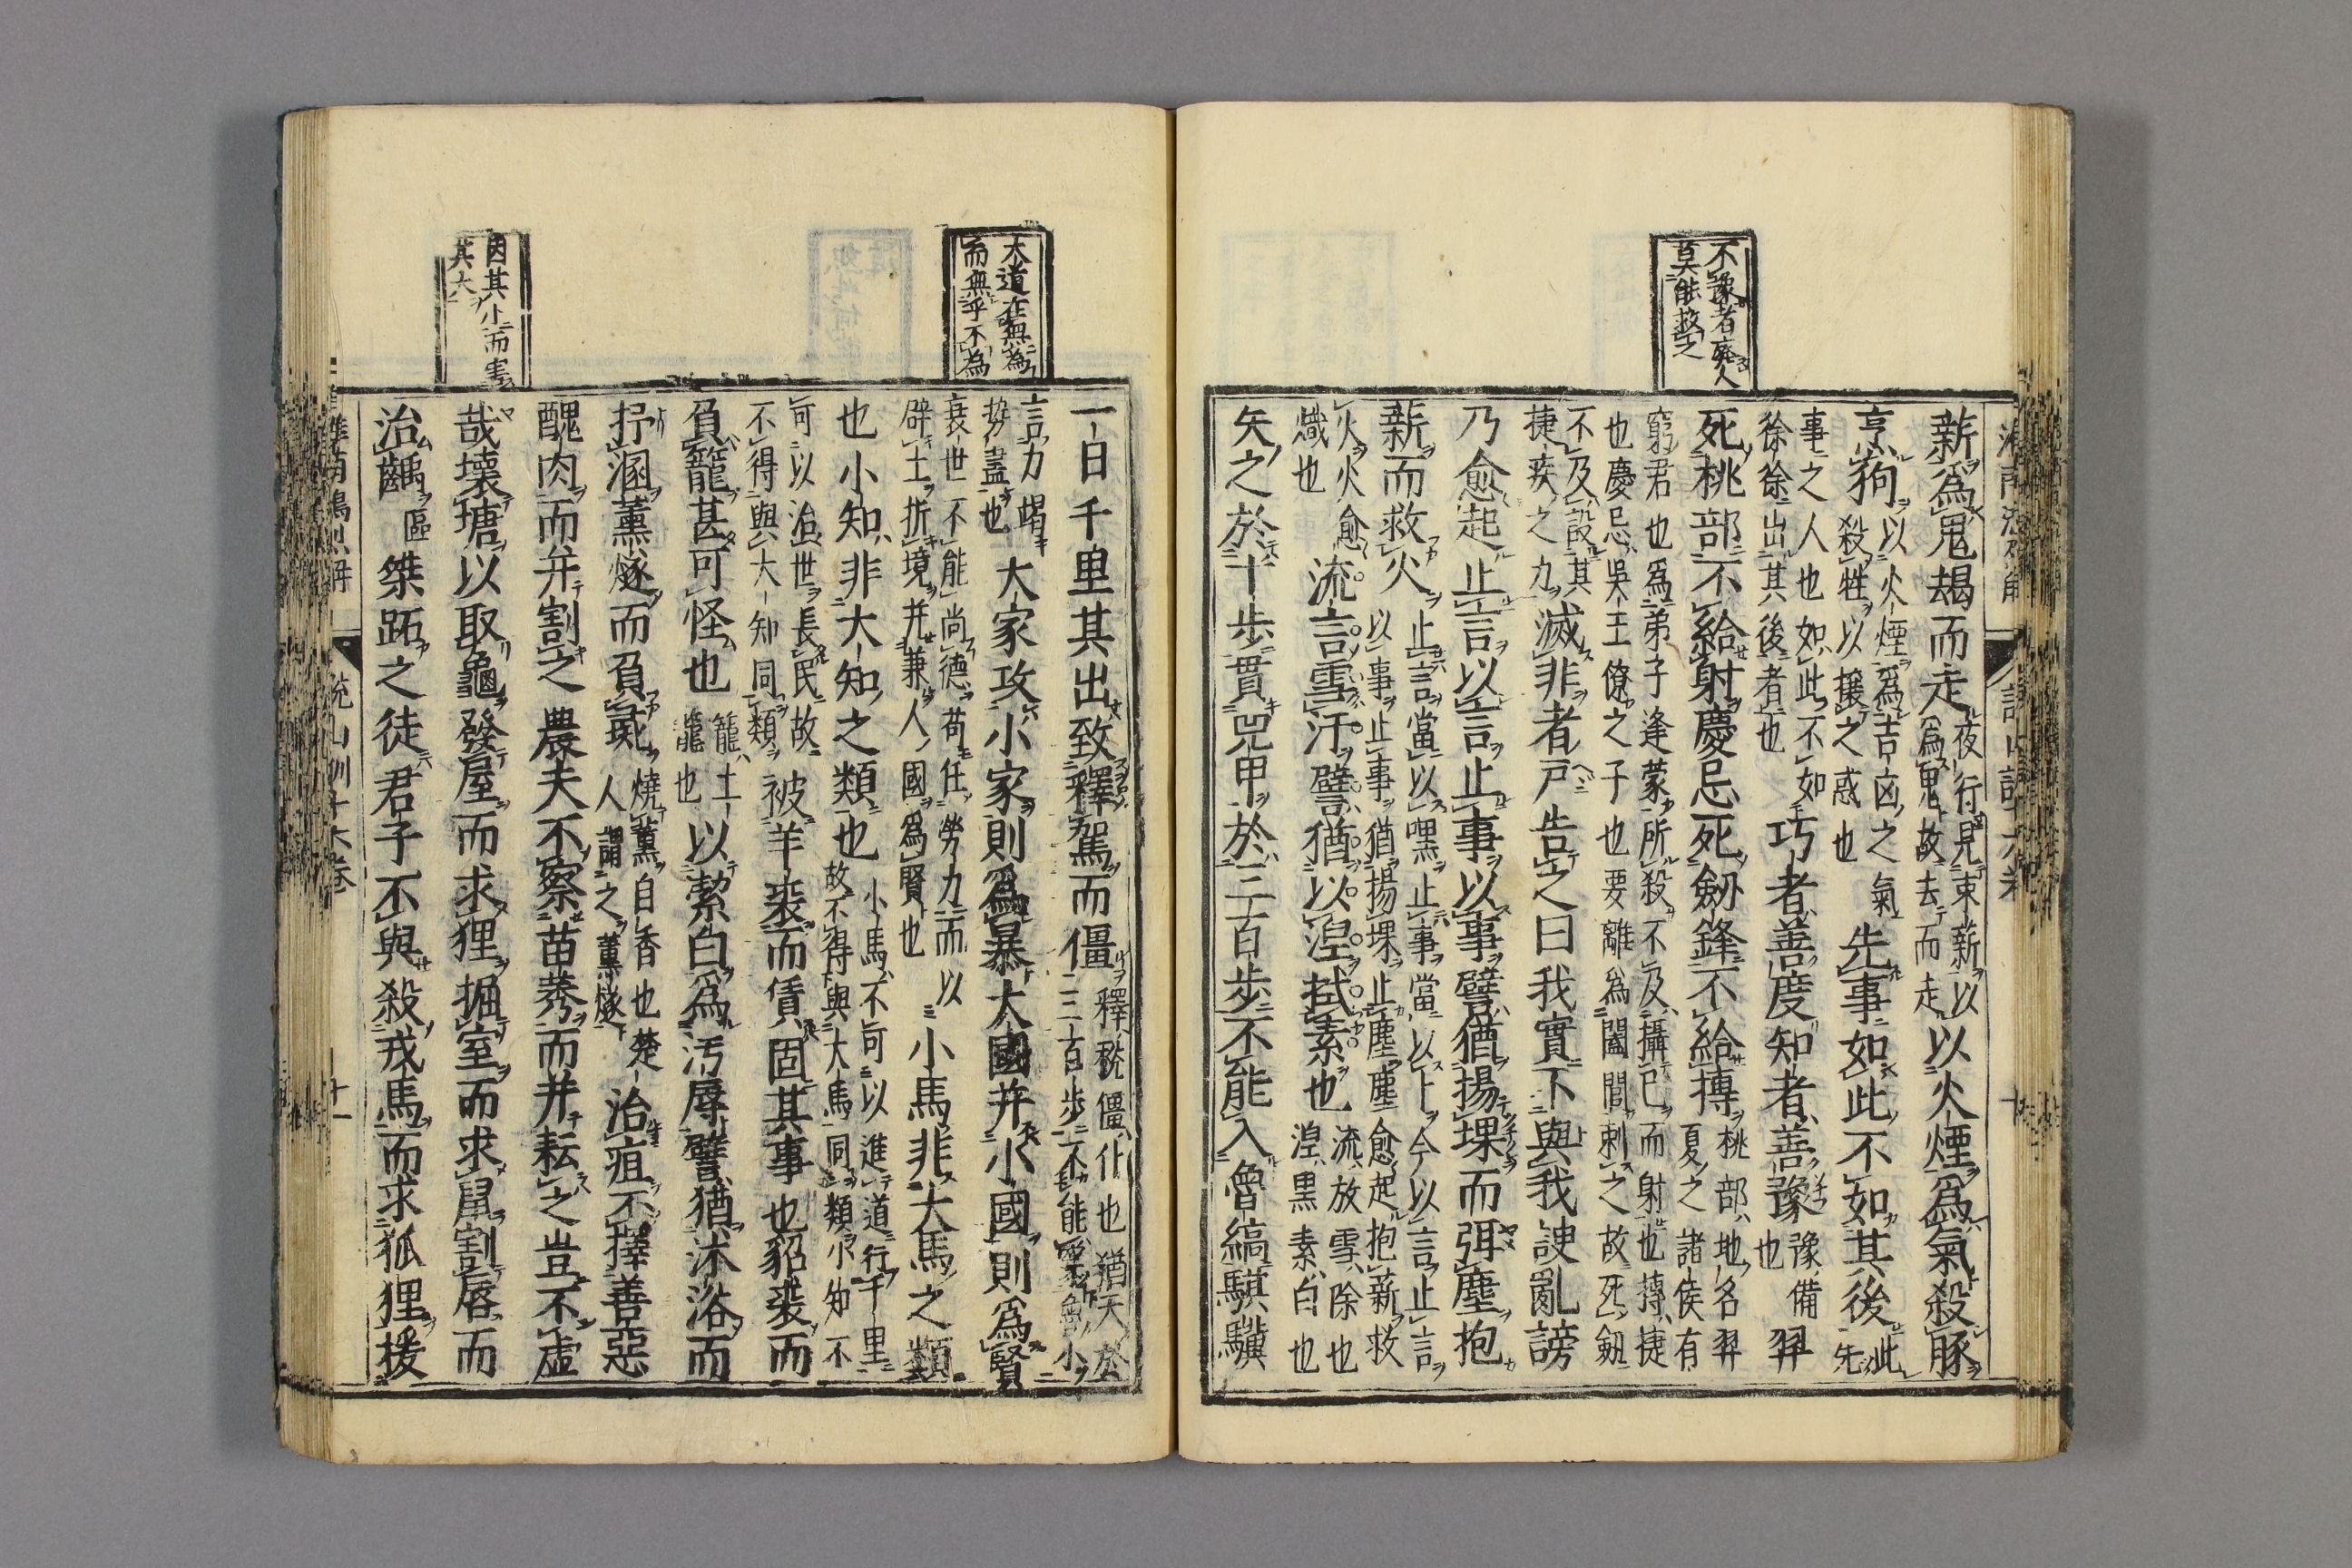 不豫者廢人
莫能救之
薪爲鬼朅而走夜行見束薪以爲鬼故去而走以火煙爲氣殺豚
烹狗以火煙爲吉凶之氣殺牲以攘之惑也先事如此不如其後此先
事之人也如此不如徐徐出其後者也巧者善度知者善豫豫備也羿
死桃部不給射慶忌死劒鋒不給搏桃部地名羿夏之諸侯有
窮君也爲弟子逢蒙所殺不及攝已而射也搏捷也慶忌吳王僚之子也要離爲闔閭刺之故死釼
不及設其捷疾之力滅非者戸告之曰我實不與我諛亂謗
乃愈起止言以言止事以事譬猶揚堁而弭塵抱
薪而救火止言當以嘿止事當以卜今以言止言以事止事猶揚堁止塵塵愈起抱薪救
火火愈熾也流言雪汙譬猶以涅拭素也流放雪除也涅黒素白也
矢之於十歩貫兕甲於三百歩不能入魯縞騏驥
大道在無爲
而無乎不爲
因其小而害
其大
一日千里其出致釋駕而僵釋稅僵仆也猶矢於三百歩不能
言力竭勢盡也大家攻小家則爲暴大國并小國則爲賢
衰世不能尚德苟任勞力而以辟土折境并兼人國爲賢也小馬非大馬之類
也小知非大知之類也小馬不可以進道行千里故不得與大馬同類小知不
可以治世長民故不得與大知同類被羊裘而賃固其事也貂裘而
負籠甚可怪也籠土籠也以絜白爲汚辱譬猶沐浴而
抒溷薰燧而負彘燒薰自香也楚人謂之薰燧治疽不擇善惡
醜肉而并割之農夫不察苗莠而并耘之豈不虛
哉壞塘以取龜發屋而求狸掘室而求鼠割脣而
治齲區桀跖之徒君子不與殺戎馬而求狐狸援